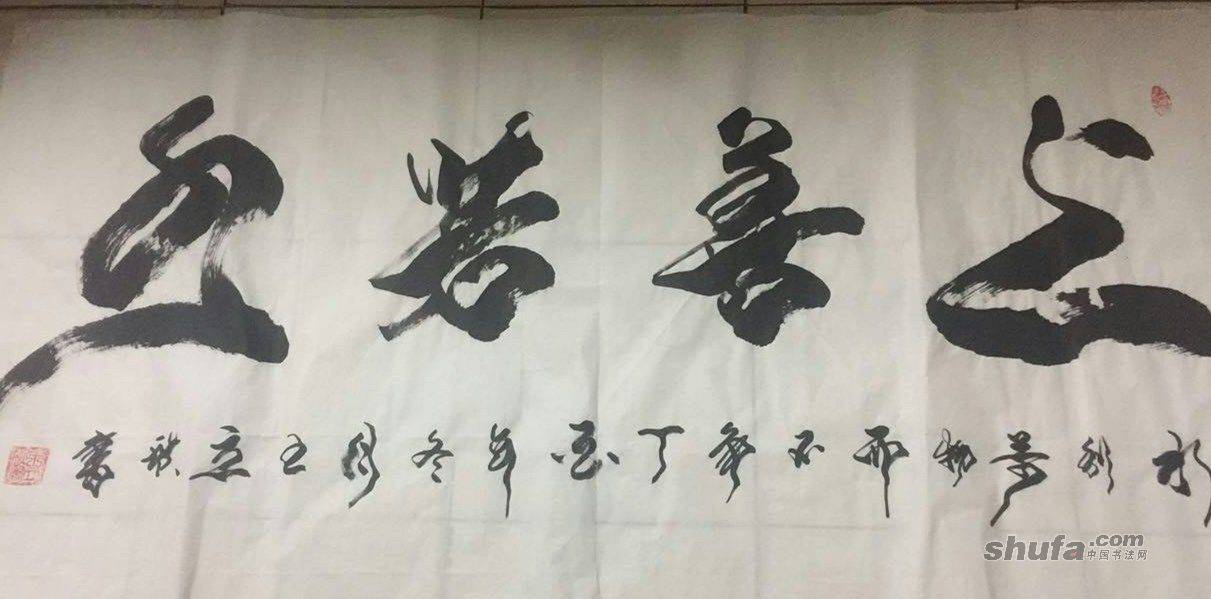 上善若水
水利萬物而不爭丁酉年冬月王書
shufa.com
中国书法网